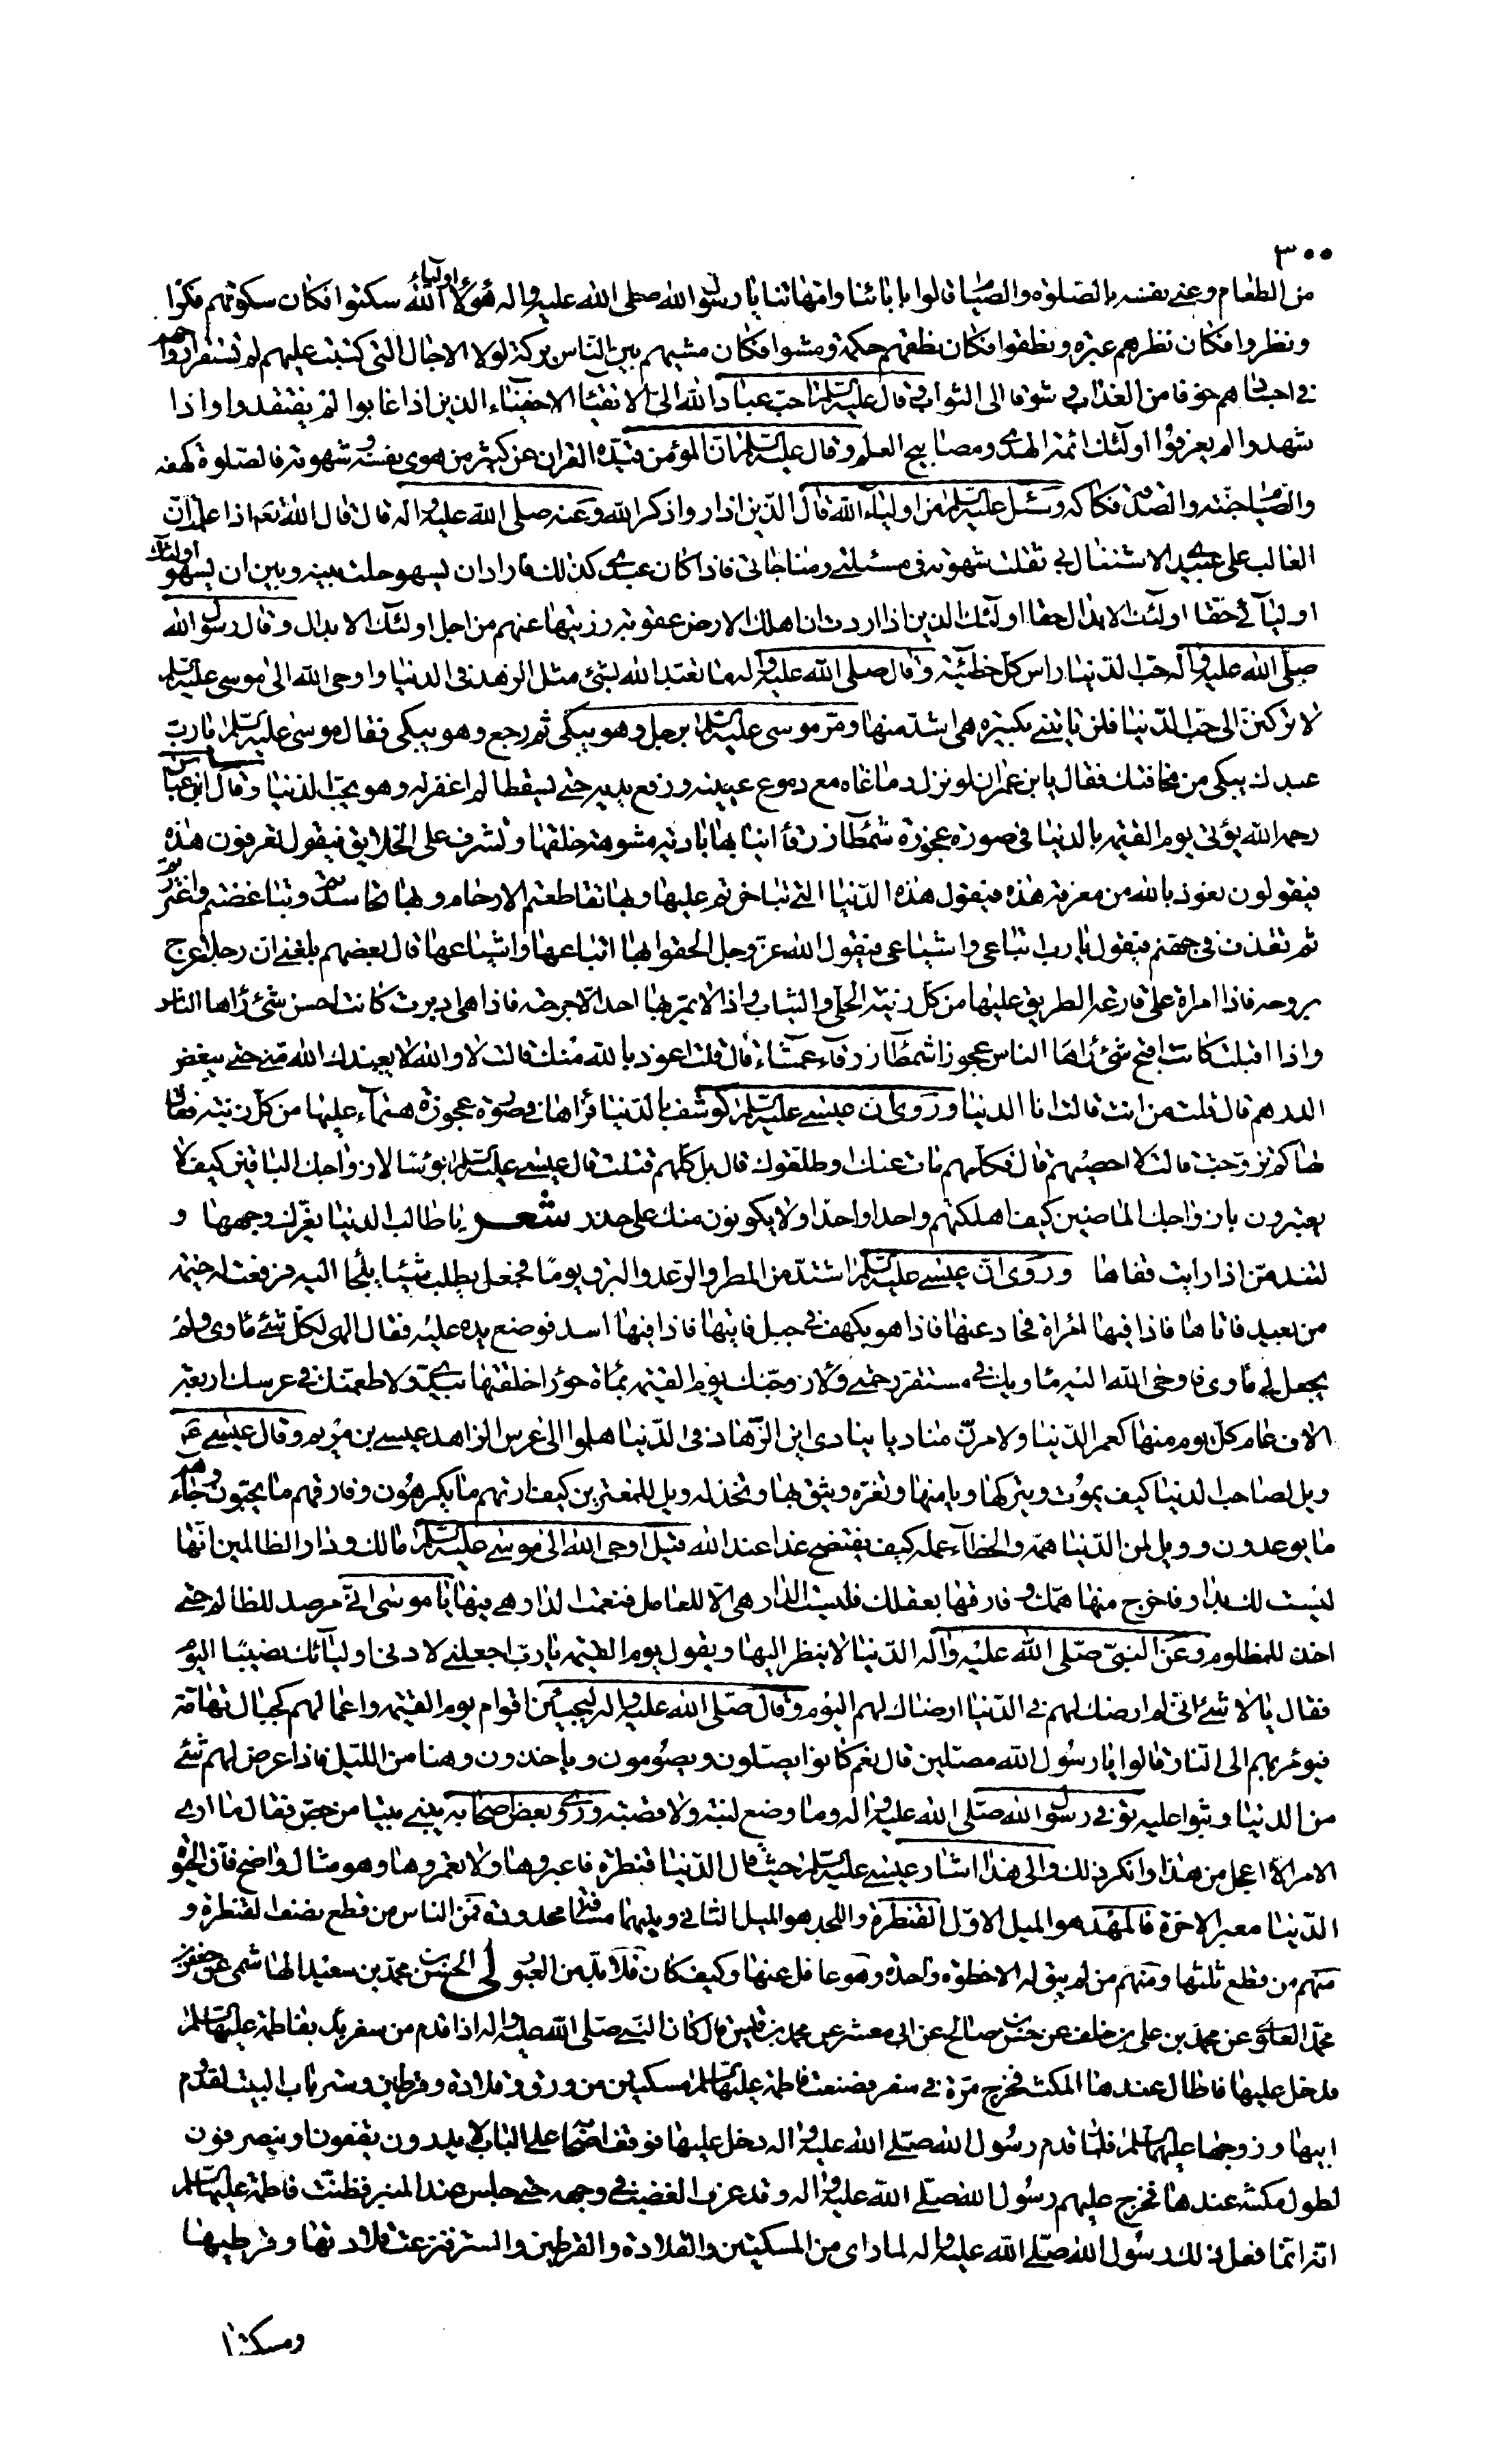 ٣٠٠
من الطعام وعنى نفسه بالصلوة والصيام قالوا بابائنا وامهاتنا يا رسول الله صلى الله عليه واله هؤلاء اولياء الله سكتوا فكان سكوتهم فكرا
ونظروا فكان نظرهم عبرة ونطقوا فكان نطقهم حكمة ومشوا فكان مشيهم بين الناس بركة لولا الاجال التى كتبت عليهم لم تستقر ارواحهم
فى اجسادهم خوفا من العذاب و شوقا الى الثواب وقال عليه السلم احب عباد الله الى الاتقياء الاخفياء الذين اذا غابوا لم يفتقدوا واذا
شهدوا لم يعرفوا اولئك ائمة الهدى ومصابيح العلم وقال عليه السلم ان المؤمن قيده القران عن كثير من هوى نفسه وشهوته فالصلوة كهفه
والصيام جنته والصدقة فكاكه وسئل عليه السلم من اولياء الله قال الذين اذا رؤا ذكر الله وعنه صلى الله عليه واله قال قال الله تعالى اذا علمت ان
الغالب على عبدى الاشتغال بى نقلت شهوته فى مسئلتى ومناجاتى فاذا كان عبدى كذلك فاراد ان يسهو حلت بينه وبين ان يسهو اولئك
اوليائى حقا اولئك الابدال حقا اولئك الذين اذا اردت ان اهلك الارض عقوبة زويتها عنهم من اجل اولئك الابدال وقال رسول الله
صلى الله عليه واله حب الدنيا راس كل خطيئة وقال صلى الله عليه واله ما تعبد الله لشئ مثل الزهد فى الدنيا واوحى الله الى موسى عليه السلم
لا تركنن الى حب الدنيا فلن تاتينى بكبيرة هى اشد منها ومر موسى عليه السلم برجل وهو يبكى ثم رجع وهو يبكى فقال موسى عليه السلم يا رب
عبدك يبكى من مخافتك فقال يا بن عمران لو نزل دماغه مع دموع عينيه ورفع يديه حتى تسقطا لم اغفر له وهو يحب الدنيا وقال ابن عباس
رحمه الله يؤتى يوم القيمة بالدنيا فى صورة عجوزة شمطا زرقاء انيابها بادية مشوهة خلقها وتشرف على الخلايق فيقول تعرفون هذه
فيقولون نعوذ بالله من معرفة هذه فيقول هذه الدنيا التى تفاخرتم عليها وبها تقاطعتم الارحام وبها تحاسدتم وتباغضتم واغتررتم
ثم تقذف فى جهنم فيقول يا رب اتباعى واشياعى فيقول الله عز وجل الحقوا بها اتباعها واشياعها قال بعضهم بلغنى ان رجلا عرج
بروحه فاذا امراة على قارعة الطريق عليها من كل زينة الحلى والثياب واذا لا يمر بها احد الا جرحته فاذا هى ادبرت كانت احسن شئ راها الناس
واذا اقبلت كانت اقبح شئ راها الناس عجوزا شمطا زرقاء عمشاء قال قلت اعوذ بالله منك قالت لا والله لا يعيذك الله منى حتى تبغض
الدرهم قال قلت من انت قالت انا الدنيا وروى ان عيسى عليه السلم كوشف بالدنيا فراها فى صورة عجوزة هتماء عليها من كل زينة فقال
لها كم تزوجت قالت لا احصيهم قال فكلهم مات عنك او طلقوك قال بل كلهم قتلت قال عيسى عليه السلم بؤسا لازواجك الباقين كيف لا
يعتبرون بازواجك الماضين كيف اهلكتهم واحدا واحدا ولا يكونون منك على حذر شعر يا طالب الدنيا يغرك وجهها و
لتندمن اذا رايت قفاها وروى ان عيسى عليه السلم اشتد من المطر والرعد والبرق يوما فجعل يطلب شيئا يلجا اليه فرفعت له خيمة
من بعيد فاتاها فاذا فيها امراة فحاد عنها فاذا هو بكهف فى جبل فاتيها فاذا فيها اسد فوضع يده عليه فقال الهى لكل شئ ماوى ولم
يجعل لى ماوى فاوحى الله اليه ماويك فى مستقر رحمتى ولازوجنك يوم القيمة بمائة حورا خلقتها بيدى ولاطعمنك فى عرسك اربعة
الاف عام كل يوم منها كعمر الدنيا ولامرن مناديا ينادى اين الزهاد فى الدنيا هلموا الى عرس الزاهد عيسى بن مريم وقال عيسى ع
ويل لصاحب الدنيا كيف يموت ويتركها ويامنها وتغره ويثق بها وتخذله ويل للمغترين كيف ارتهم ما يكرهون وفارقهم ما يحبون وجاءهم
ما يوعدون وويل لمن الدنيا همه والخطاء عمله كيف يفتضح غدا عند الله قيل اوحى الله الى موسى عليه السلم مالك ودار الظالمين انها
ليست لك بدار فاخرج منها همك وفارقها بعقلك فلبيست الدار هى الا للعامل فنعمت الدار هى فيها يا موسى انى مرصد للظالم حتى
اخذ للمظلوم وعن النبى صلى الله عليه واله الدنيا لا ينظر اليها ويقول يوم القيمة يا رب اجعلنى لادنى اوليائك نصيبا اليوم
فقال يا لا شئ انى لم ارضك لهم فى الدنيا ارضاك لهم اليوم وقال صلى الله عليه واله ليجيئن اقوام يوم القيمة واعمالهم كجبال تهامة
فيؤمر بهم الى النار قالوا يا رسول الله مصلين قال نعم كانوا يصلون ويصومون وياخذون وهنا من الليل فاذا عرض لهم شئ
من الدنيا وثبوا عليه توفى رسول الله صلى الله عليه واله وما وضع لبنة ولا قصبة وراى بعض اصحابه يبنى بيتا من جص فقال ما ارى
الامر الا اعجل من هذا وانكر ذلك والى هذا اشار عيسى عليه السلم حيث قال الدنيا قنطرة فاعبروها ولا تعمروها وهو مثال واضح فان الحيوة
الدنيا معبر الاخرة فالمهد هو الميل الاول القنطرة واللحد هو الميل الثانى وبينهما مسافة محدودة فمن الناس من قطع نصف القنطرة و
منهم من قطع ثلثها ومنهم من لم يبق له الا خطوة واحدة وهو غافل عنها وكيف كان فلابد من العبور لى الحسن بن محمد بن سعيد الهاشمى عن جعفر بن
محمد العلوى عن محمد بن على بن خلف عن حسن بن صالح عن ابى معشر عن محمد بن قيس قال كان النبى صلى الله عليه واله اذا قدم من سفر بدا بفاطمة عليها السلم
فدخل عليها فاطال عندها المكث فخرج مرة فى سفر فصنعت فاطمة عليها السلم مسكتين من ورق وقلادة وقرطين وستر باب البيت لقدوم
ابيها وزوجها عليهما السلم فلما قدم رسول الله صلى الله عليه واله دخل عليها فوقف اصحابه على الباب لا يدرون يقفون او ينصرفون
لطول مكثه عندها فخرج عليهم رسول الله صلى الله عليه واله وقد عرف الغضب فى وجهه حتى جلس عند المنبر فظنت فاطمة عليها السلم
انه انما فعل ذلك رسول الله صلى الله عليه واله لما راى من المسكتين والقلادة والقرطين والستر فنزعت قلادتها وقرطيها
ومسكتيها